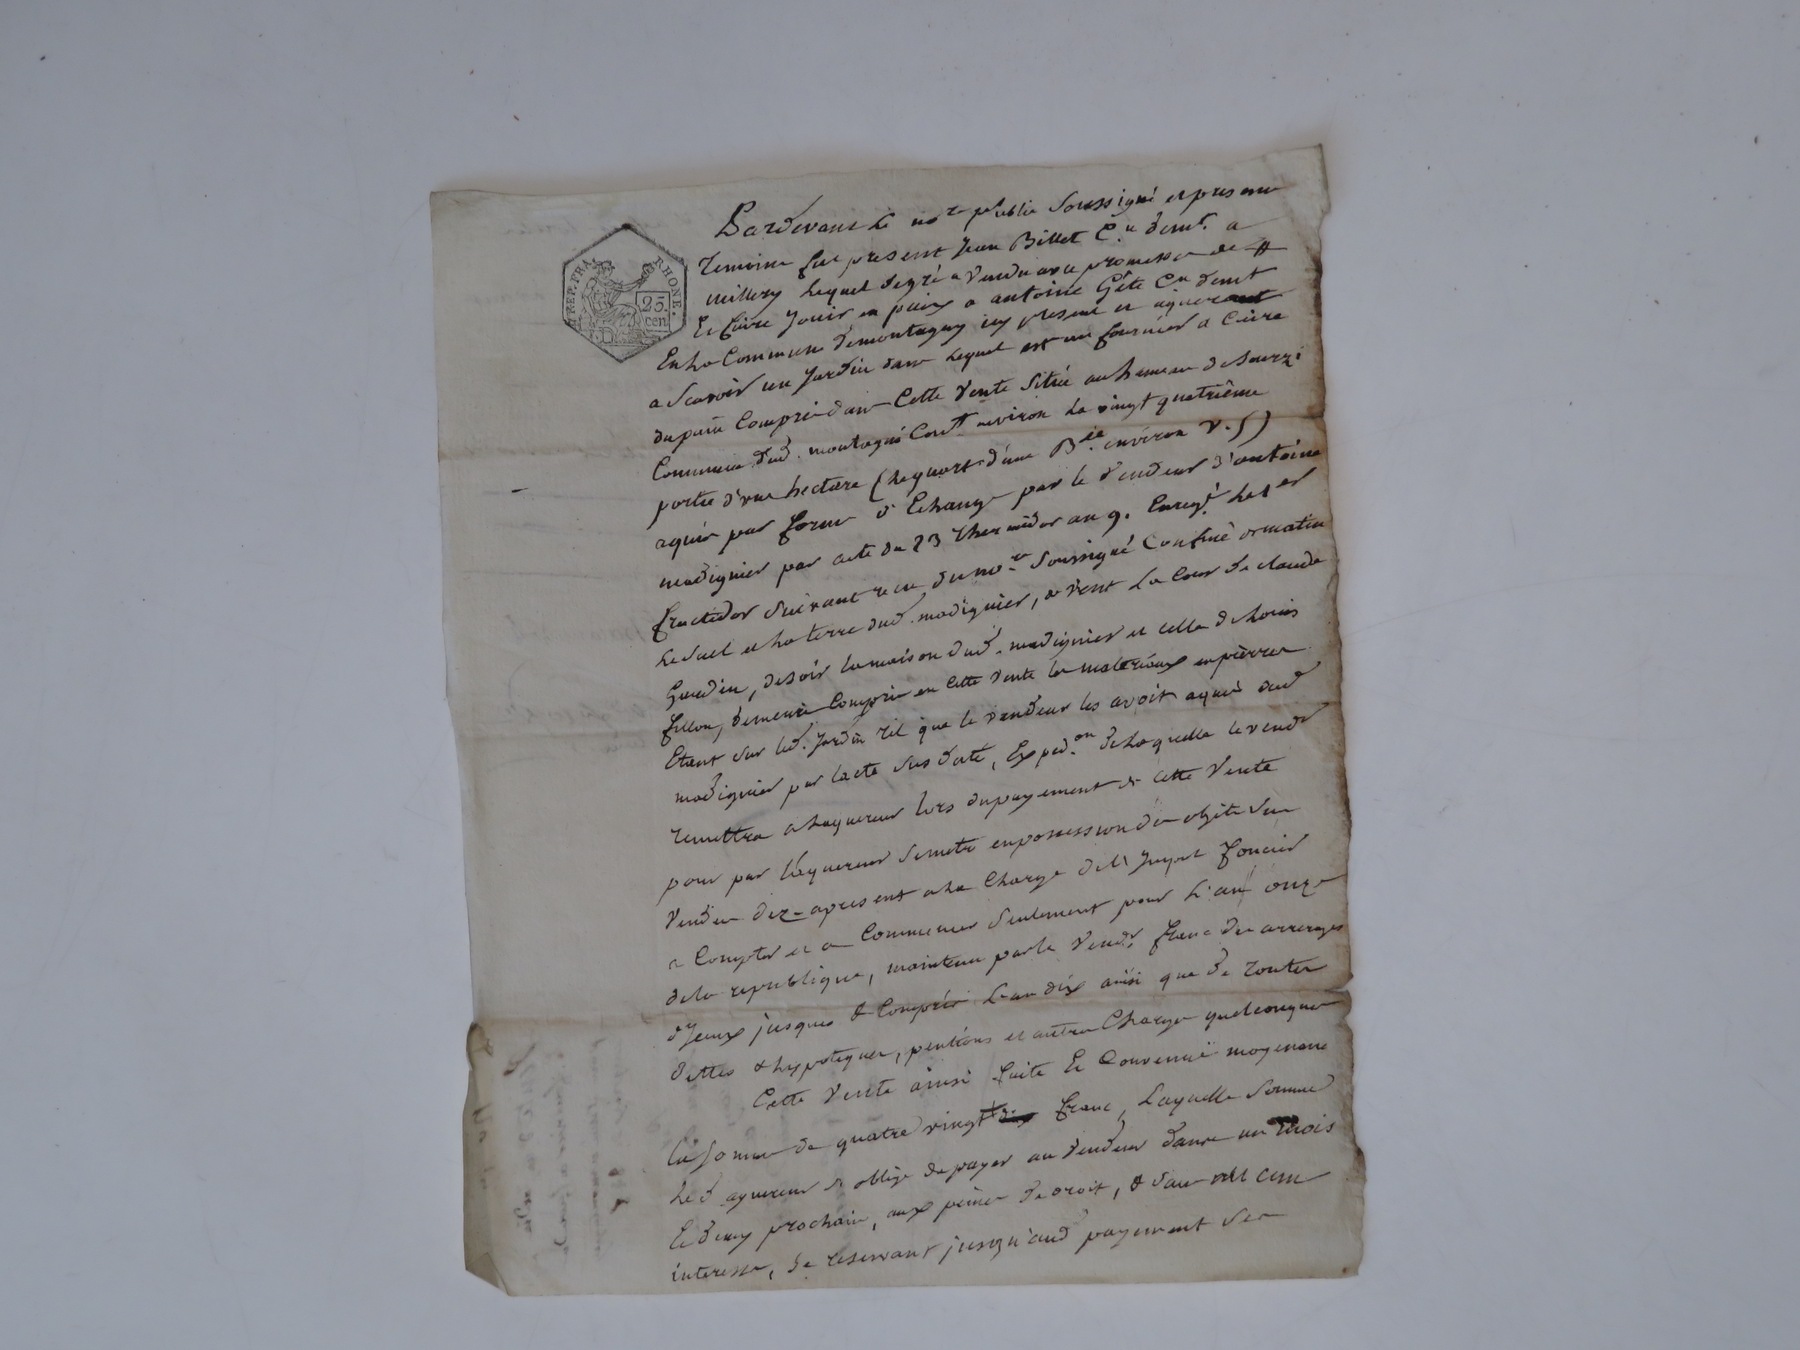 REP. FRA. RHONE.
25. cen.
Pardevant le no.re publie Soussigné et presence
temoins fut present Jean Billet C.en demt. a
millery lequel degré a vendu avec promesse de #
Et faire jouir en paix a antoine Gête C.en demt
En la Commune demontagny icy present et aquereur
a Scavoir un Jardin dans lequel est un fournier a Cuire
dupain Compris dans Cette Vente Sitúe au hameau de Sourzi
Commune dud. montagni Cont.t environ la vingt quatriême
portie d'une hectare (le quart d'une B.rée environ V. S)
aquis par forme d'Echange par le Vendeur d'antoine
madignier par acte du 23 thermidor an 9. Enreg.é le 1.er
fructidor Suivant recu du no.re Soussigné Confiné de matin
le Suel et la terre dud. madignier, de Vent La Cour de claude
Gourdin, de soir la maison dud. madignier et celle de Louis
fillon, demeure Compris en Cette Vente les materiaux en pierres
Etant Sur led. Jardin tel que le vendeur les avoit aquis dud
madignier par lacte Susdaté, Exped.on de laquelle le vendr
remettra a laquereur lors dupayement de Cette Vente
pour par l'aquereur Semetre enpossession des objets Sus
Vendus dez-apresent a la Charge de l'Impot foncier
a Compter et a Commencer Seulement pour L'an onze
dela republique, maintenu par le Vendr franc des arrerages
d'Jceux jusques & Compris L'an dix ainsi que de toutes
dettes & hypoteques, pentions et autres Charges quelconques
Cette Vente ainsi faite Et Convenuë moyenant
la Somme de quatre vingt franc, Laquelle Somme
Led aquereur S'oblige de payer au Vendeur dans un mois
Et demy prochain, aux peines de droit, & Sans
interesse, Se reservant jusqu'aud payement Ses